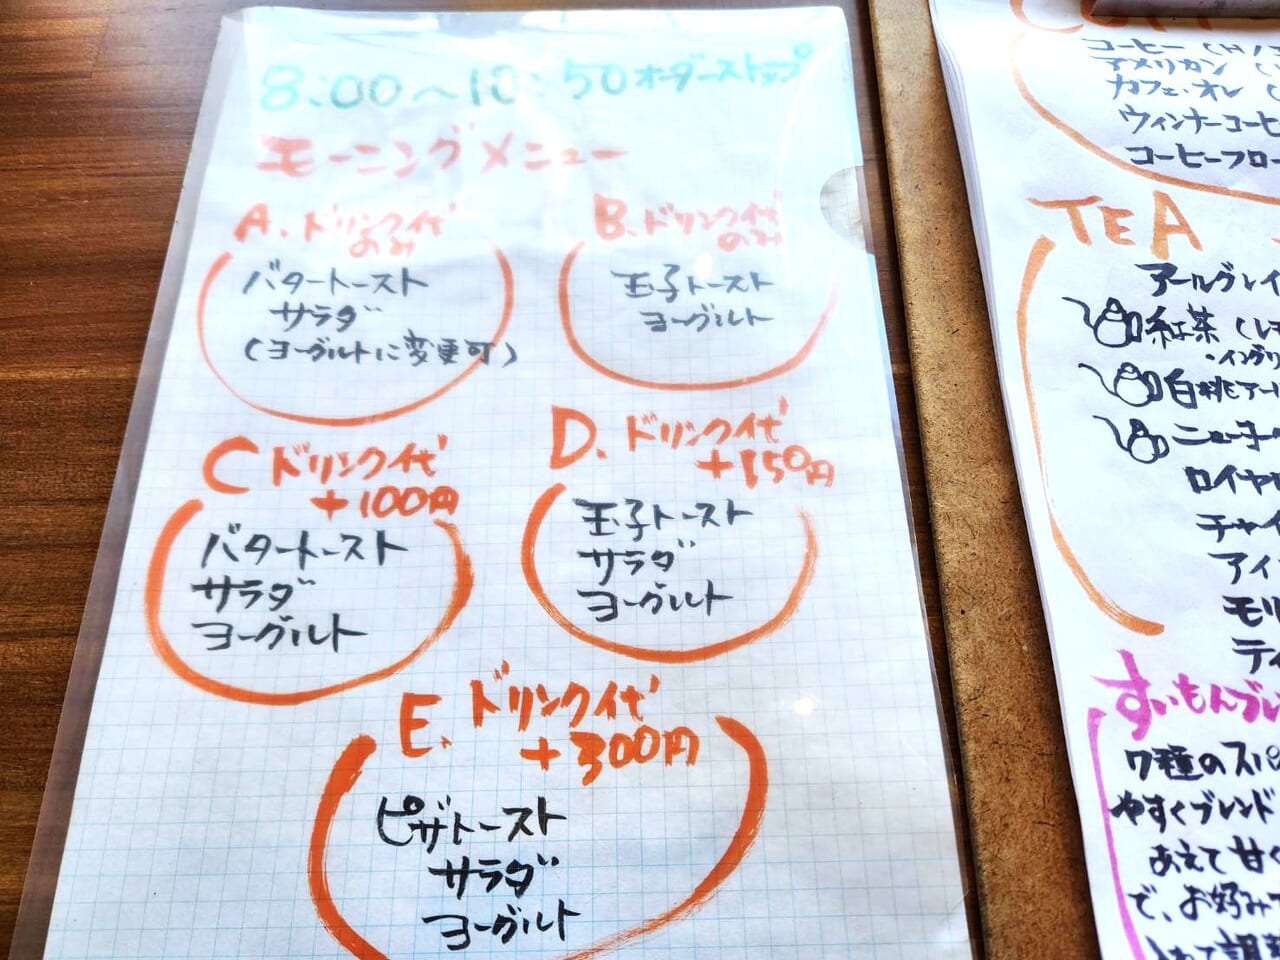 8:00〜10:50オーダーストップ
モーニングメニュー
A.ドリンク代
のみ
バタートースト
サラダ
(ヨーグルトに変更可)
B.ドリンク代
のみ
玉子トースト
ヨーグルト
C ドリンク代
+100円
バタートースト
サラダ
ヨーグルト
D.ドリンク代
+150円
玉子トースト
サラダ
ヨーグルト
E.ドリンク代
+300円
ピザトースト
サラダ
ヨーグルト
コーヒー(H/
アメリカン(
カフェ・オレ(
ウィンナーコーヒ
コーヒーフロー
TEA
アールグレイ
紅茶(レ
・イングリ
白桃アー
ロイヤ
チャイ
アイ
モリ
ティ
すいもんブレ
7種のスパ
やすくブレンド
あえて甘く
で、お好みで